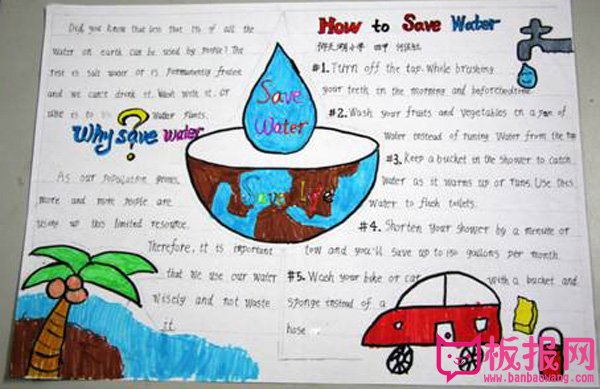 Did you know that less that 1% of all the
water on earth can be used by people? The
rest is salt water or is permanently frozen
and we can't drink it. Wash with it, or
use is to Water plants.
Why save water
?
As our population grows,
more and more people are
using up this limited resource.
Therefore, it is important
that we use our water
wisely and not waste
it.
Save
Water
Save life
How to Save Water
#1. Turn off the tap. While brushing
your teeth in the morning and before bedtime.
#2. Wash your fruits and vegetables in a pan of
water instead of runing Water from the tap
#3. Keep a bucket in the shower to catch
water as it warms up or runs. Use this
water to flush toilets.
#4. Shorten your shower by a minute or
tow and you'll save up to 150 gallons per month.
#5. Wash your bike or car with a bucket and
sponge instead of a
hose
板报网
www.banbaowang.com